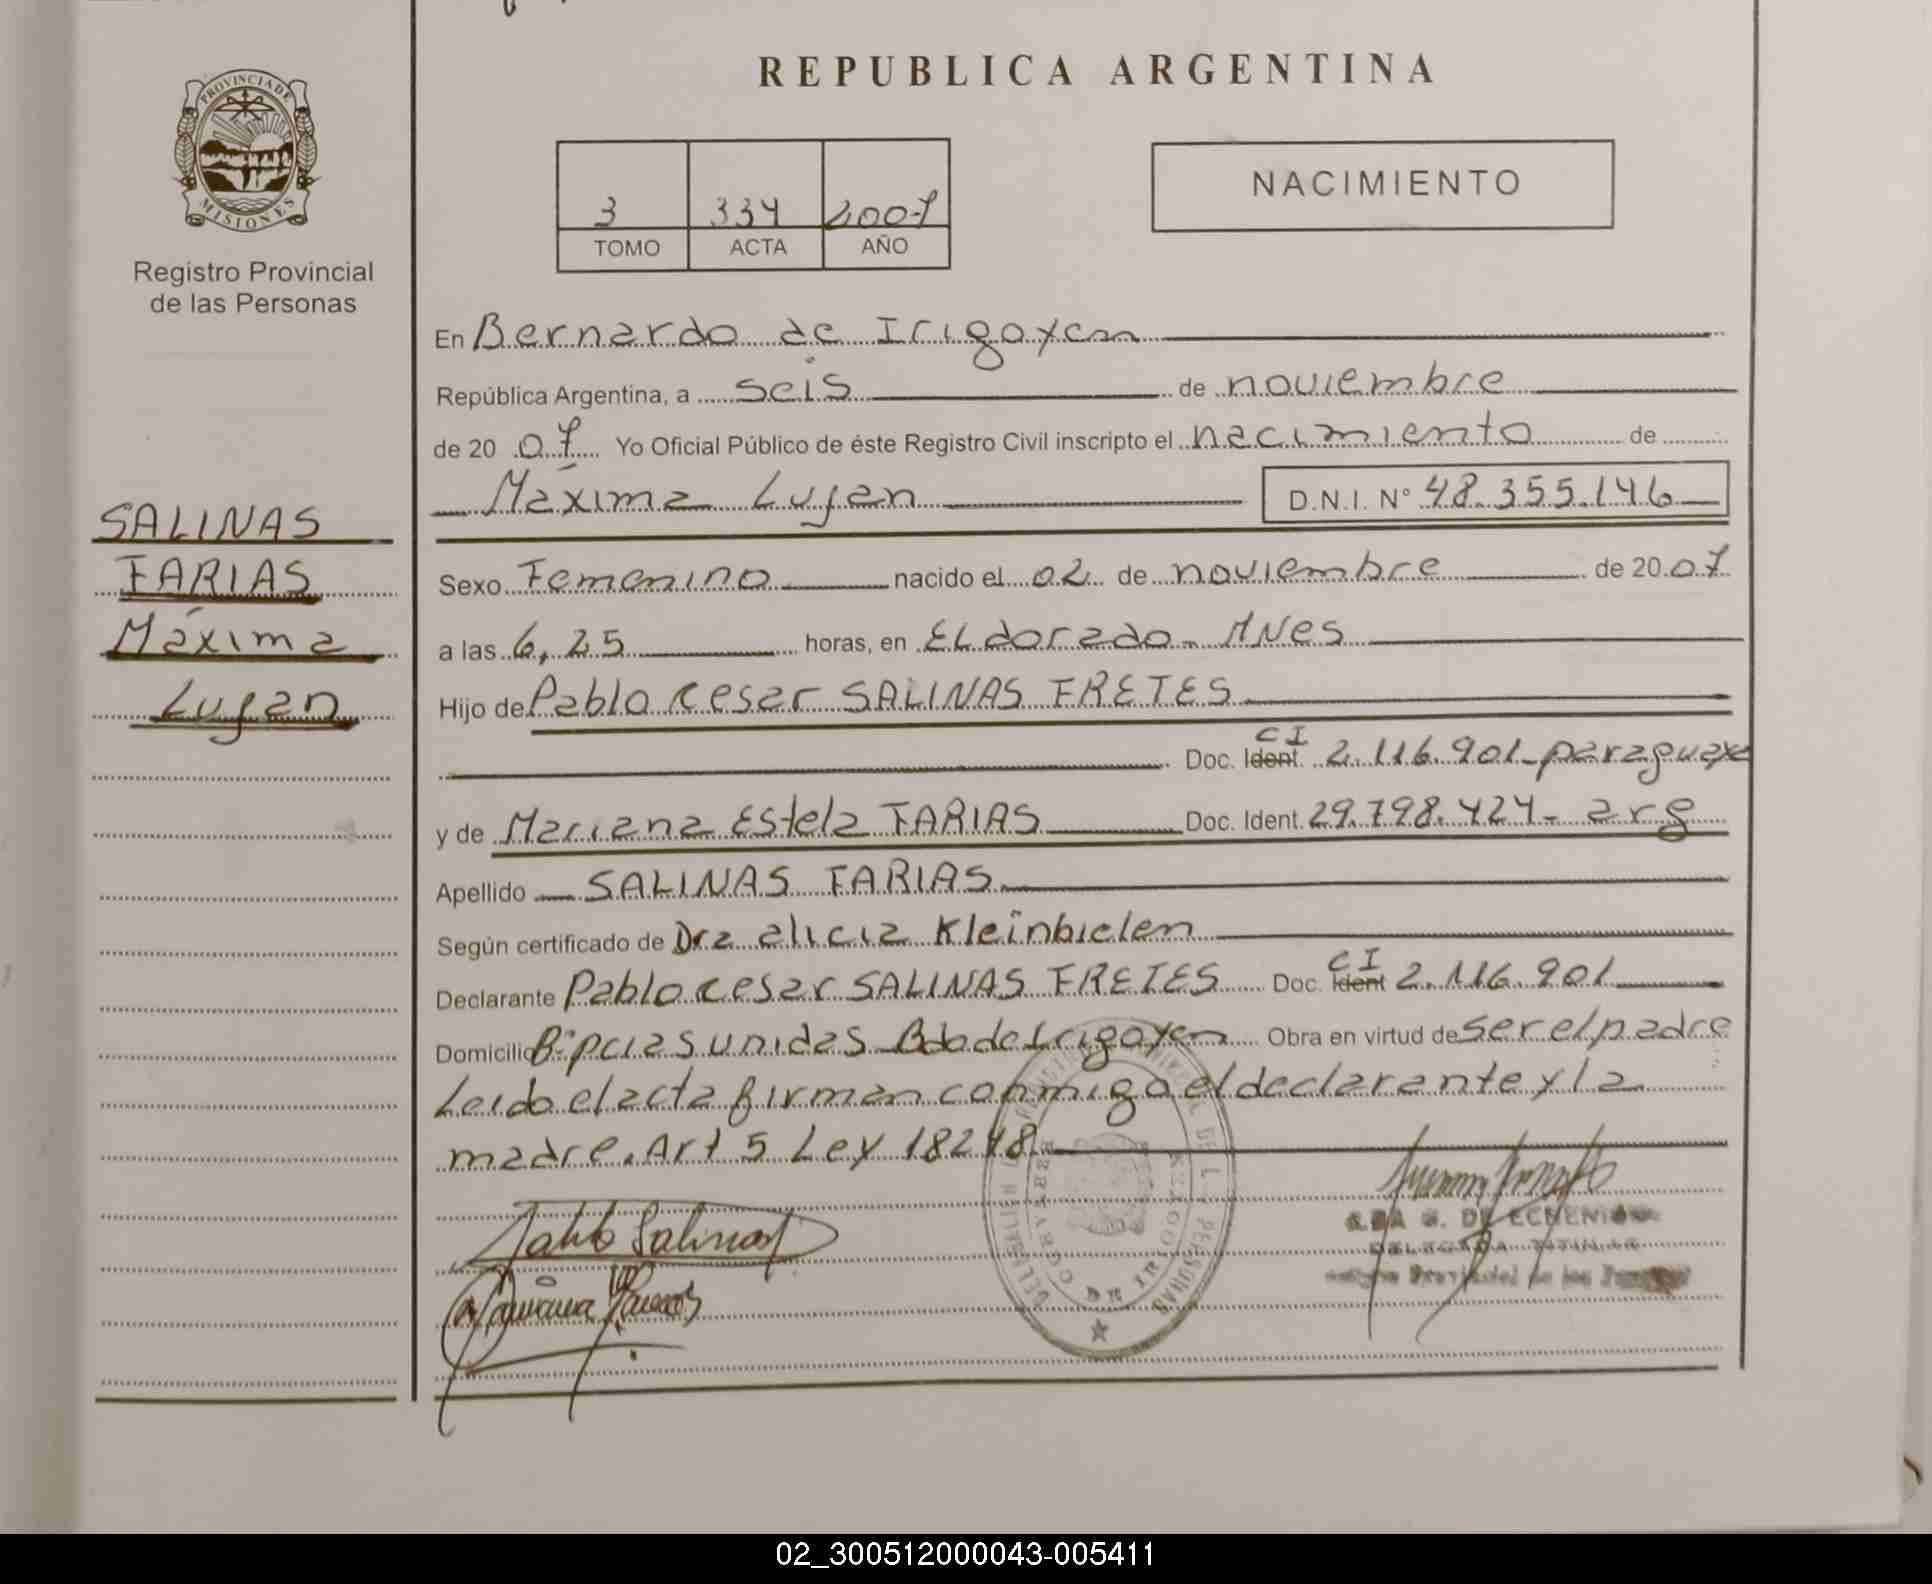 PROVINCIA DE
MISIONES
Registro Provincial
de las Personas
SALINAS
FARIAS
Máxima
Lujan
REPUBLICA ARGENTINA
3 334 2007
TOMO ACTA AÑO
NACIMIENTO
En Bernardo de Irigoyen
República Argentina, a seis de noviembre
de 20 07 Yo Oficial Público de éste Registro Civil inscripto el nacimiento de
Máxima Lujan D.N.I. N° 48.355.146
Sexo Femenino nacido el 02 de noviembre de 20 07
a las 6,25 horas, en ELdorado - MNes
Hijo de Pablo Cesar SALINAS FRETES
Doc. Ident. CI 2.116.901 - paraguaya
y de Mariana Estela FARIAS Doc. Ident. 29.798.424 - arg
Apellido SALINAS FARIAS
Según certificado de Dra alicia Kleinbielen
Declarante Pablo Cesar SALINAS FRETES Doc. Ident CI 2.116.901
Domicilio B° pcias unidas Bdo de Irigoyen Obra en virtud de ser el padre
Leido el acta firman conmigo el declarante y la
madre. Art 5 Ley 18248
Pablo Salinas
DE ECHENI
DELEGADA TITULAR
Provincial de las
DE IRIGOYEN
02_300512000043-005411